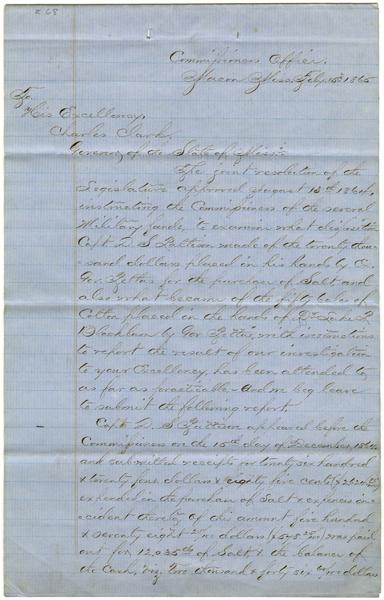 Commissioners Office.
Macon Miss. Feby. 15th 1865
To
His Excellency,
Charles Clark,
Governor of the State of Miss:
The joint resolution of the
Legislature approved August 13th 1864,
instructing the Commissioners of the several
Military funds, to examine what disposition
Capt D. S. Pattison made of the twenty thou-
sand dollars placed in his hands by Ex
Gov. Pettus for the purchase of Salt and
also what became of the fifty bales of
Cotton placed in the hands of Dr Luke P.
Blackburn by Gov Pettus, with instructions
to report the result of our investigation
to your Excellency, has been attended to
as far as practicable. And we beg leave
to submit the following report.
Capt. D. S. Pattison appeared before the
Commissioners on the 15th day of December 1864,
and submitted receipts for twenty six hundred
& twenty four dollars & eighty five cents
expended in the purchase of Salt & expenses in-
cident thereto, Of this amount five hundred
& seventy eight dollars was paid
out for 12,035 lbs of Salt, & the balance of
the Cash, viz, Two thousand & forty six dollars